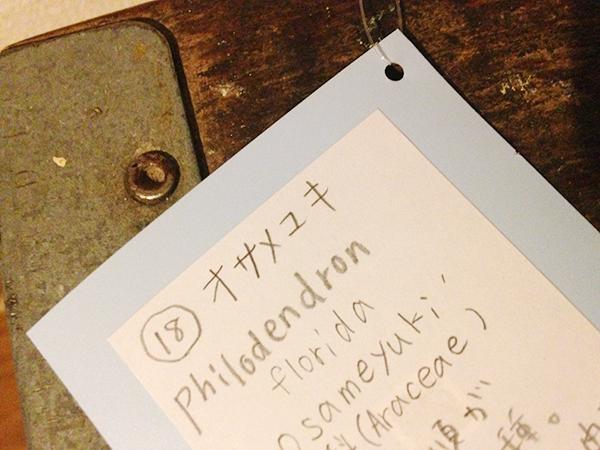 ⑱ オサメユキ
Philodendron
florida
osameyuki'
科(Araceae)
が
種。